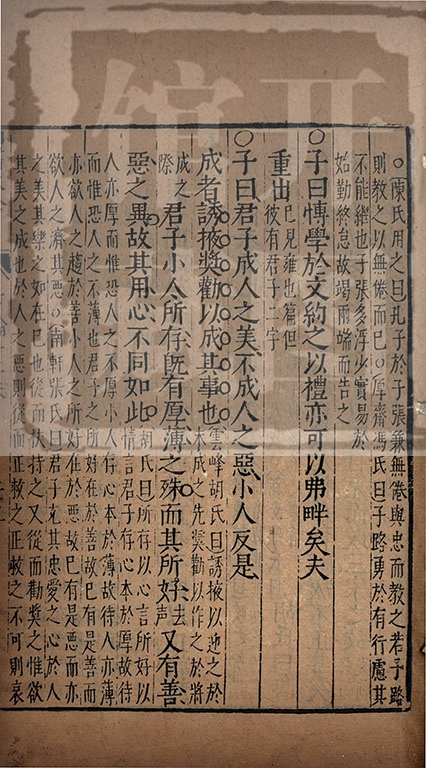 ○陳氏用之曰孔子於子張兼無倦與忠而教之若子路
則教之以無倦而已○厚齋馮氏曰子路勇於有行慮其
不能繼也子張多浮少實易於
始勤終怠故竭兩端而告之
○子曰博學於文約之以禮亦可以弗畔矣夫
重出已見雍也篇但
彼有君子二字
○子曰君子成人之美不成人之惡小人反是
成者誘掖獎勸以成其事也雲峰胡氏曰誘掖以迎之於
未成之先獎勸以作之於將
成之
際君子小人所存既有厚薄之殊而其所好去聲又有善
惡之異故其用心不同如此胡氏曰所存以心言所好以
情言君子存心本於厚故待
人亦厚而惟恐人之不厚小人存心本於薄故待人亦薄
而惟恐人之不薄也君子之所好在於善故已有是善而
亦欲人之趨於善小人之所好在於惡故已有是惡而亦
欲人之濟其惡○南軒張氏曰君子充其忠愛之心於人
之美其樂之如在已也從而扶持之又從而勸獎之惟欲
其美之成也於人之惡則從而正救之正救之不可則哀